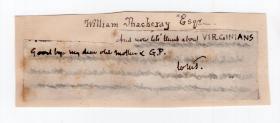 William Thackeray Esqr.
And now let's think about VIRGINIANS
Good bye my dear old mother & G.P.